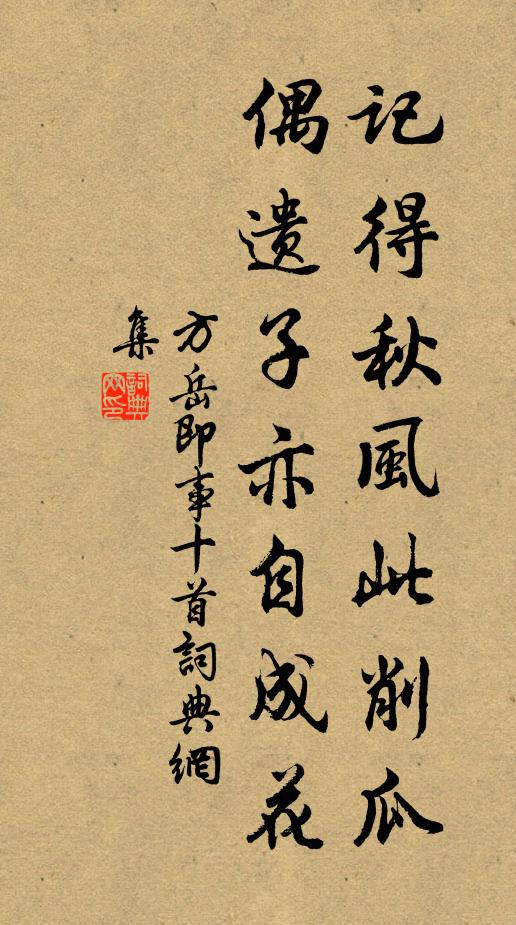 記得秋風此削瓜
偶遺子亦自成花
方岳即事十首詞典網
集
詞典網印